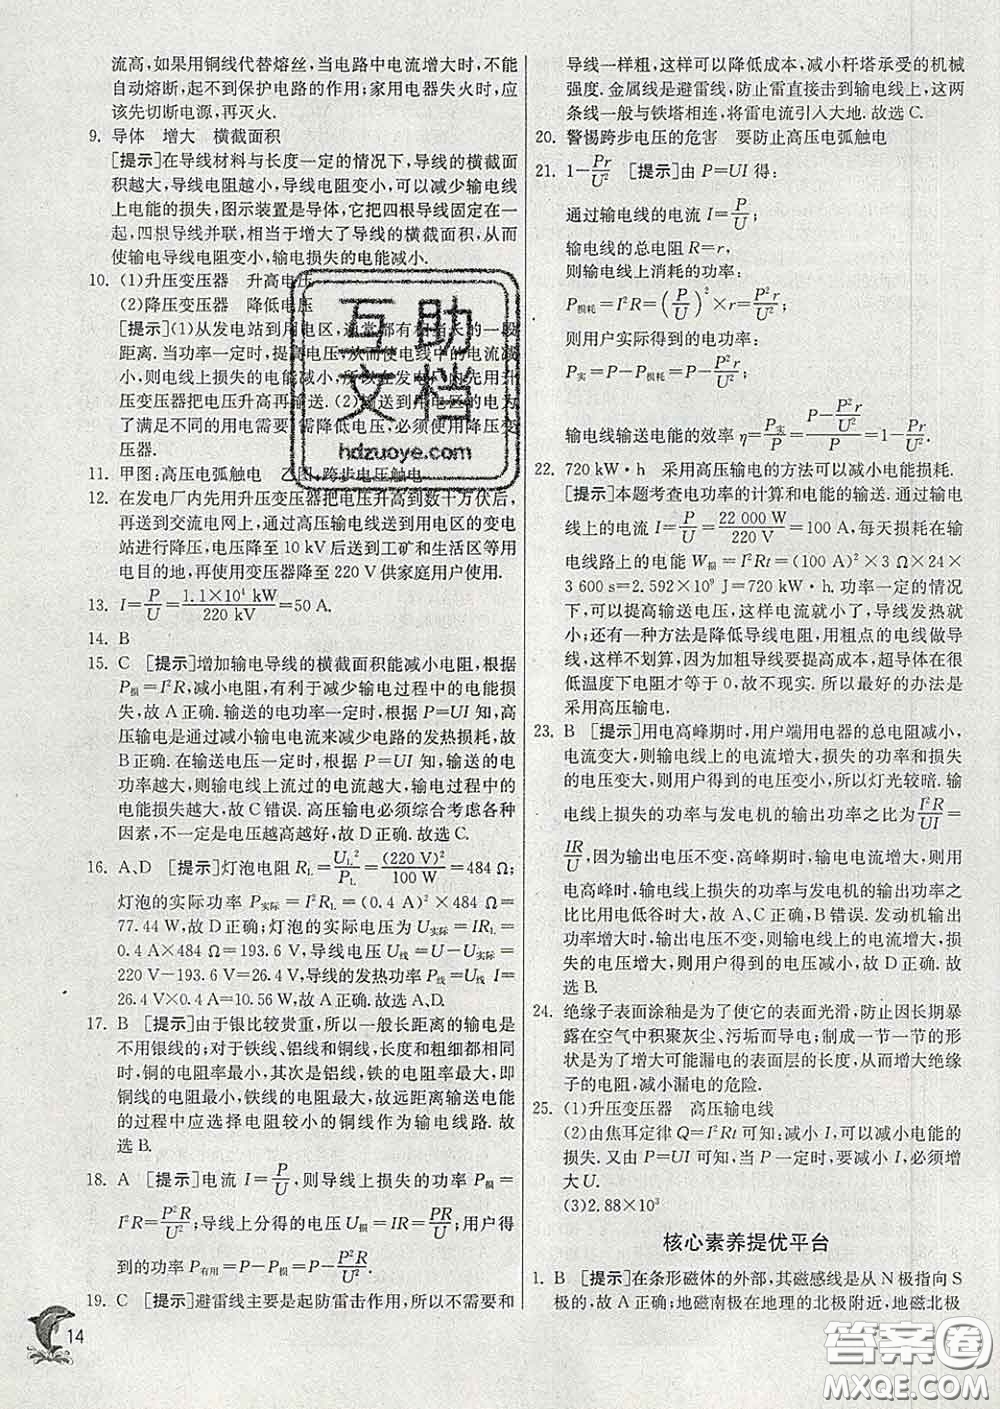 流高,如果用铜线代替熔丝,当电路中电流增大时,不能
自动熔断,起不到保护电路的作用;家用电器失火时,应
该先切断电源,再灭火.
9. 导体 增大 横截面积
[提示]在导线材料与长度一定的情况下,导线的横截面
积越大,导线电阻越小,导线电阻变小,可以减少输电线
上电能的损失,图示装置是导体,它把四根导线固定在一
起,四根导线并联,相当于增大了导线的横截面积,从而
使输电导线电阻变小,输电损失的电能减小.
10. (1)升压变压器 升高电压
(2)降压变压器 降低电压
[提示](1)从发电站到用电区,通常都有相当长的一段
距离.当功率一定时,提高电压,从而使电线中的电流减
小,则电线上损失的电能减小,所以在发电厂内先用升
压变压器把电压升高再输送.(2)输送到用电区的电为
了满足不同的用电需要 需降低电压,必须使用降压变
压器.
11. 甲图:高压电弧触电 乙图:跨步电压触电
12. 在发电厂内先用升压变压器把电压升高到数十万伏后,
再送到交流电网上,通过高压输电线送到用电区的变电
站进行降压,电压降至 10 kV后送到工矿和生活区等用
电目的地,再使用变压器降至 220 V供家庭用户使用.
13. I=P/U=1.1×10⁴ kW/220 kV=50 A.
14. B
15. C [提示]增加输电导线的横截面积能减小电阻,根据
P损=I²R,减小电阻,有利于减少输电过程中的电能损
失,故A正确.输送的电功率一定时,根据P=UI知,高
压输电是通过减小输电电流来减少电路的发热损耗,故
B正确.在输送电压一定时,根据P=UI知,输送的电
功率越大,则输电线上流过的电流越大,输电过程中的
电能损失越大,故C错误.高压输电必须综合考虑各种
因素,不一定是电压越高越好,故D正确.故选C.
16. A、D [提示]灯泡电阻RL=UL²/PL=(220 V)²/100 W=484 Ω;
灯泡的实际功率P实际=I²RL=(0.4 A)²×484 Ω=
77.44 W,故D正确;灯泡的实际电压为U实际=IRL=
0.4 A×484 Ω=193.6 V,导线电压U线=U-U实际=
220 V-193.6 V=26.4 V,导线的发热功率P线=U线 I=
26.4 V×0.4 A=10.56 W,故A正确.故选A、D.
17. B [提示]由于银比较贵重,所以一般长距离的输电是
不用银线的;对于铁线、铝线和铜线,长度和粗细都相同
时,铜的电阻率最小,其次是铝线,铁的电阻率最大,即
铜线的电阻最小,铁线的电阻最大,故远距离输送电能
的过程中应选择电阻较小的铜线作为输电线路.故
选B.
18. A [提示]电流I=P/U,则导线上损失的功率P损=
I²R=P²R/U²;导线上分得的电压U损=IR=PR/U;用户得
到的功率P有用=P-P损=P-P²R/U².
19. C [提示]避雷线主要是起防雷击作用,所以不需要和
14
导线一样粗,这样可以降低成本,减小杆塔承受的机械
强度.金属线是避雷线,防止雷直接击到输电线上,这两
条线一般与铁塔相连,将雷电流引入大地.故选C.
20. 警惕跨步电压的危害 要防止高压电弧触电
21. 1-Pr/U² [提示]由P=UI得:
通过输电线的电流I=P/U;
输电线的总电阻R=r,
则输电线上消耗的功率:
P损耗=I²R=(P/U)²×r=P²r/U²;
则用户实际得到的电功率:
P实=P-P损耗=P-P²r/U²;
输电线路输送电能的效率η=P实/P=(P-P²r/U²)/P=1-Pr/U².
22. 720 kW·h 采用高压输电的方法可以减小电能损耗.
[提示]本题考查电功率的计算和电能的输送.通过输电
线上的电流I=P/U=22 000 W/220 V=100 A,每天损耗在输
电线路上的电能W损=I²Rt=(100 A)²×3 Ω×24×
3 600 s=2.592×10⁹ J=720 kW·h.功率一定的情况
下,可以提高输送电压,这样电流就小了,导线发热就
小;还有一种方法是降低导线电阻,用粗点的电线做导
线,这样不划算,因为加粗导线要提高成本,超导体在很
低温度下电阻才等于0,故不现实.所以最好的办法是
采用高压输电.
23. B [提示]用电高峰期时,用户端用电器的总电阻减小,
电流变大,则输电线上的电流增大,损失的功率和损失
的电压变大,则用户得到的电压变小,所以灯光较暗.输
电线上损失的功率与发电机的输出功率之比为I²R/UI=
IR/U,因为输出电压不变,高峰期时,输电电流大,则用
电高峰时,输电线上损失的功率与发电机的输出功率之
比比用电低谷时大,故A、C正确,B错误.发动机输出
功率增大时,输出电压不变,则输电线上的电流增大,损
失的电压增大,则用户得到的电压减小,故D正确.故
选B.
24. 绝缘子表面涂釉是为了使它的表面光滑,防止因长期暴
露在空气中积聚灰尘、污垢而导电;制成一节一节的形
状是为了增大可能漏电的表面层的长度,从而增大绝缘
子的电阻,减小漏电的危险.
25. (1)升压变压器 高压输电线
(2)由焦耳定律Q=I²Rt可知:减小I,可以减小电能的
损失.又由P=UI可知,当P一定时,要减小I,必须增
大U.
(3)2.88×10³
核心素养提优平台
1. B [提示]在条形磁体的外部,其磁感线是从N极指向S
极的,故A正确;地磁南极在地理的北极附近,地磁北极
互助
文档
hdzuoye.com
答案圈
MXQE.COM